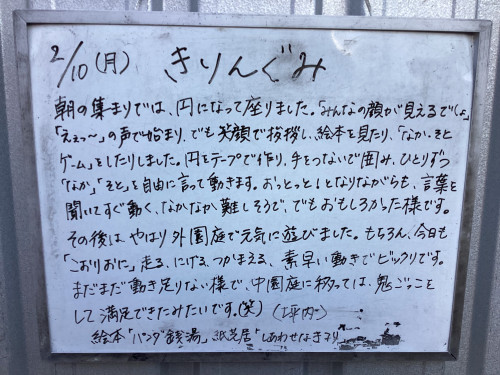 2/10(月) きりんぐみ
朝の集まりでは、円になって座りました。「みんなの顔が見えるでしょ」
「ええっ〜」の声で始まり、でも笑顔で挨拶し、絵本を見たり、「なか・そと
ゲーム」をしたりしました。円をテープで作り、手をつないで囲み、ひとりずつ
「なか」「そと」を自由に言って動きます。おっとっと!となりながらも、言葉を
聞いてすぐ動く、なかなか難しそうで、でもおもしろかった様です。
その後は、やはり外園庭で元気に遊びました。もちろん、今日も
「こおりおに」走る、にげる、つかまえる、素早い動きでビックリです。
まだまだ動き足りない様で、中園庭に移っては、鬼ごっこ
して満足できたみたいです。(笑) (坪内)
絵本「パンダ銭湯」紙芝居「しあわせなき